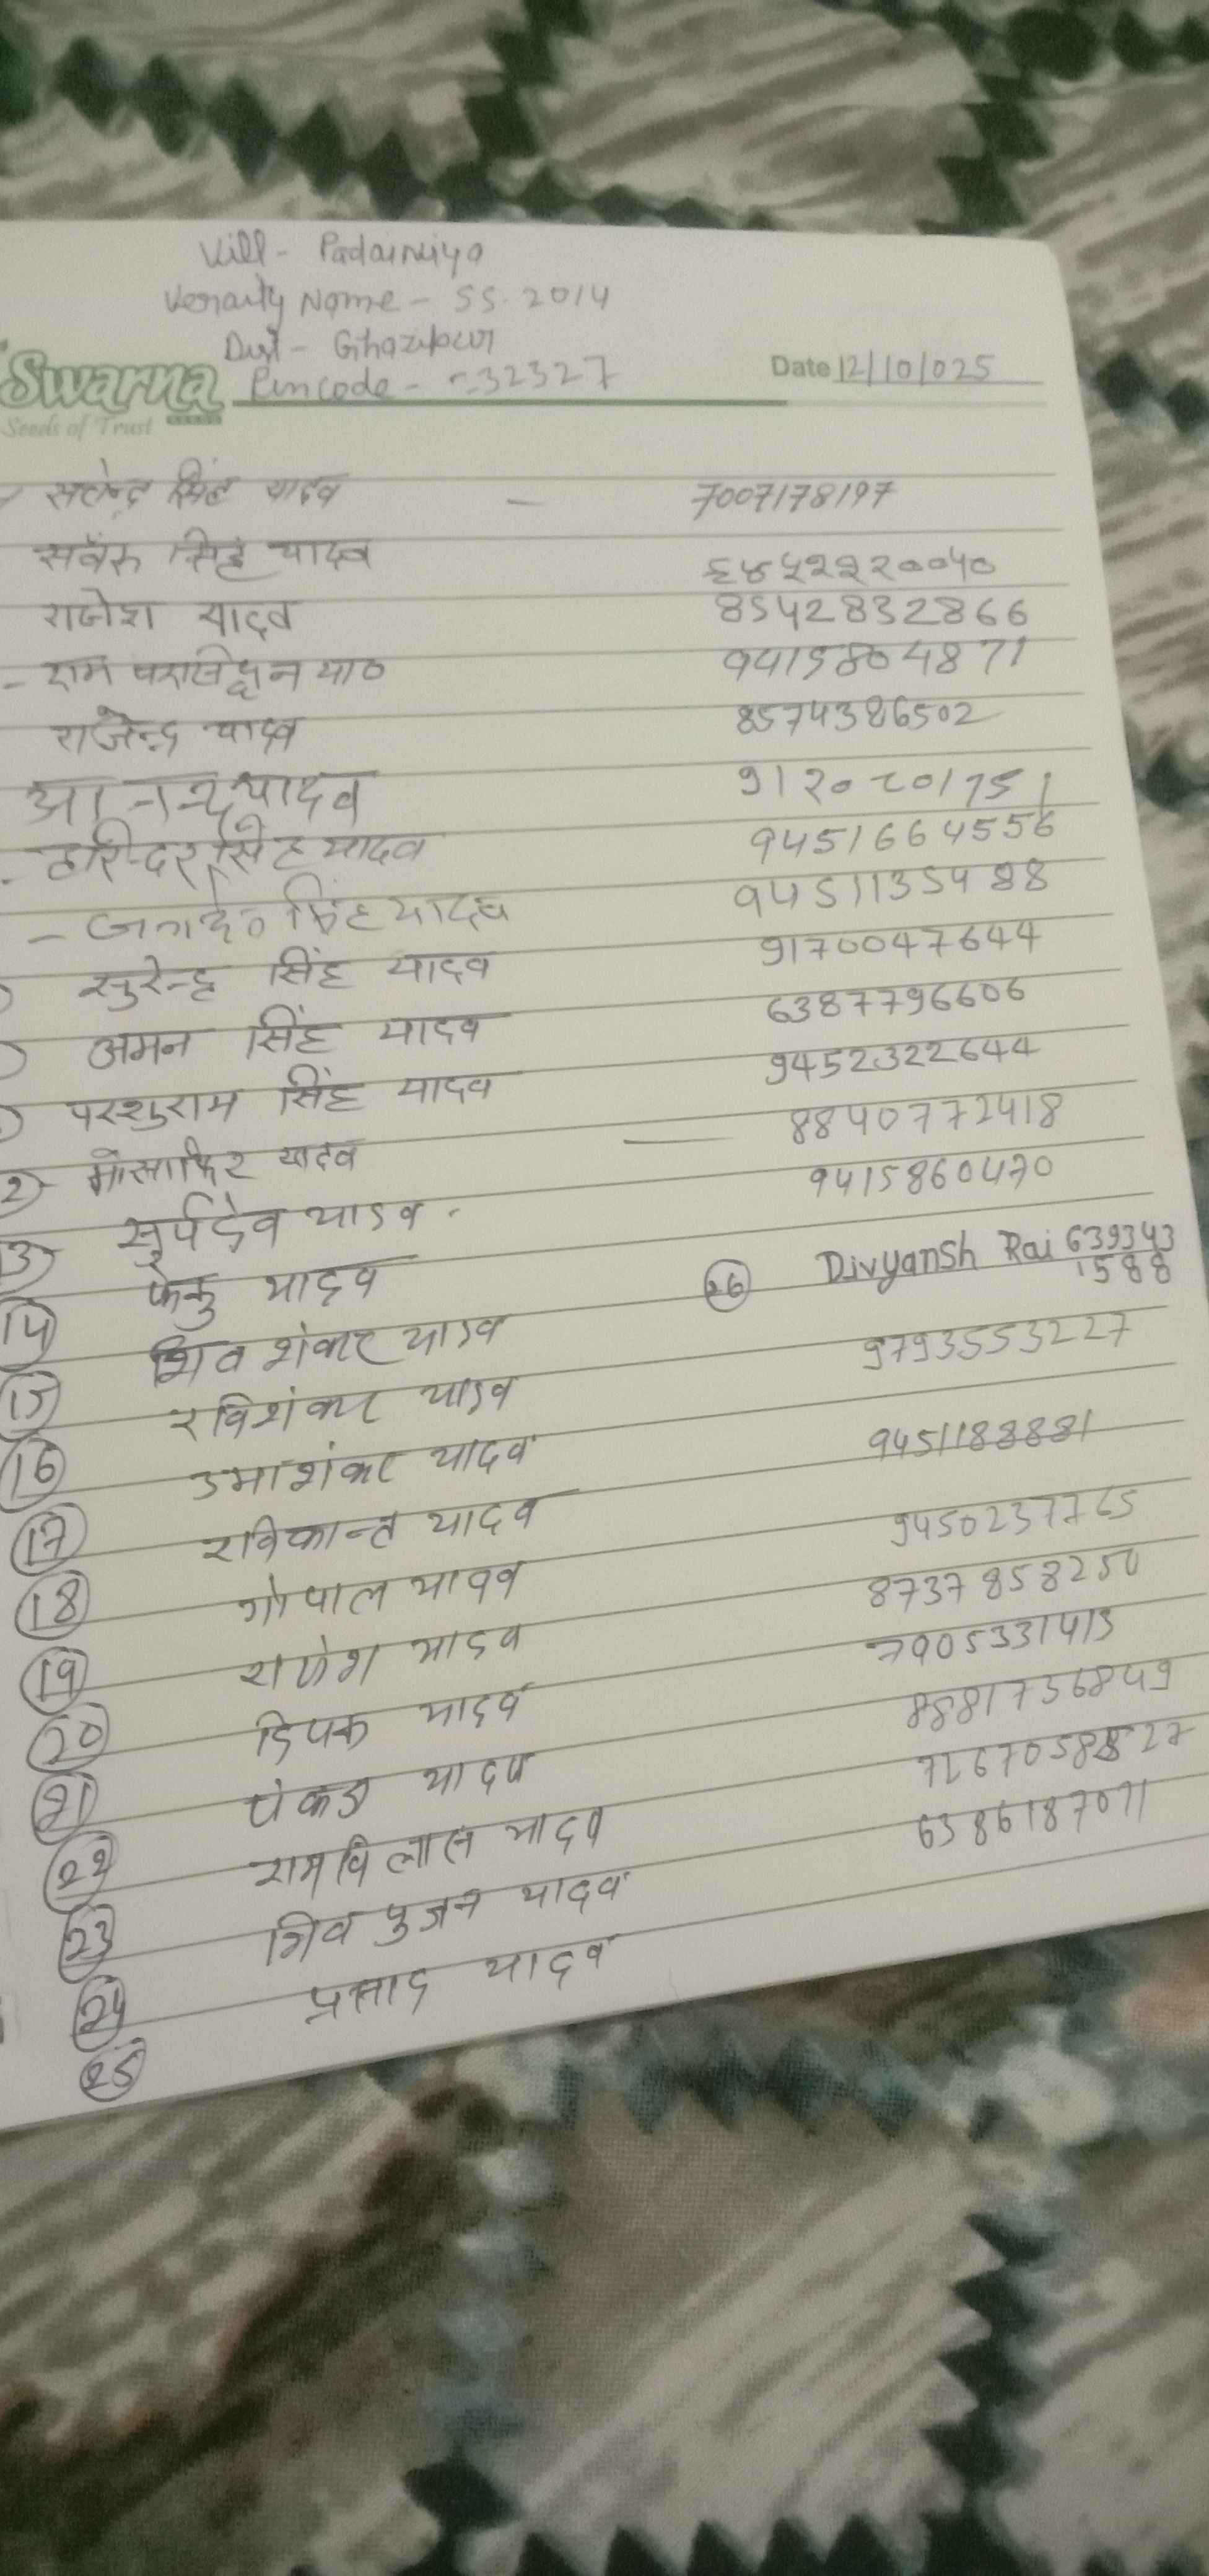 Vill - Padainiya
Veraity Name - SS. 2014
Dist - Ghazipur
Swarna Pincode - 232327 Date 12/10/025
Seeds of Trust SEEDS
सत्येन्द्र सिंह यादव - 7007178197
सिंह यादव ६४५२२२००५०
राजेश यादव 8542832866
- राम या० 9415804871
राजेन्द्र यादव 8574386502
आनन्द यादव
- हरिन्दर सिंह यादव 9451664556
- सिंह यादव 9451135488
सुरेन्द्र सिंह यादव 9170047644
अमन सिंह यादव 6387796606
परशुराम सिंह यादव 9452322644
मोसाफिर यादव — 8840772418
13 सूर्यदेव यादव . 9415860470
14 फेकु यादव
26 Divyansh Rai 639343
1588
15 शिव शंकर यादव 9793553227
16 रविशंकर यादव
17 उमाशंकर यादव 9451188881
18 रविकान्त यादव
19 गोपाल यादव 9450237765
20 राजेश यादव 8737858250
21 दिपक यादव 7905331413
22 पंकज यादव 8881756849
23 रामविलास यादव
24 शिव पुजन यादव 6386187071
25 प्रसाद यादव